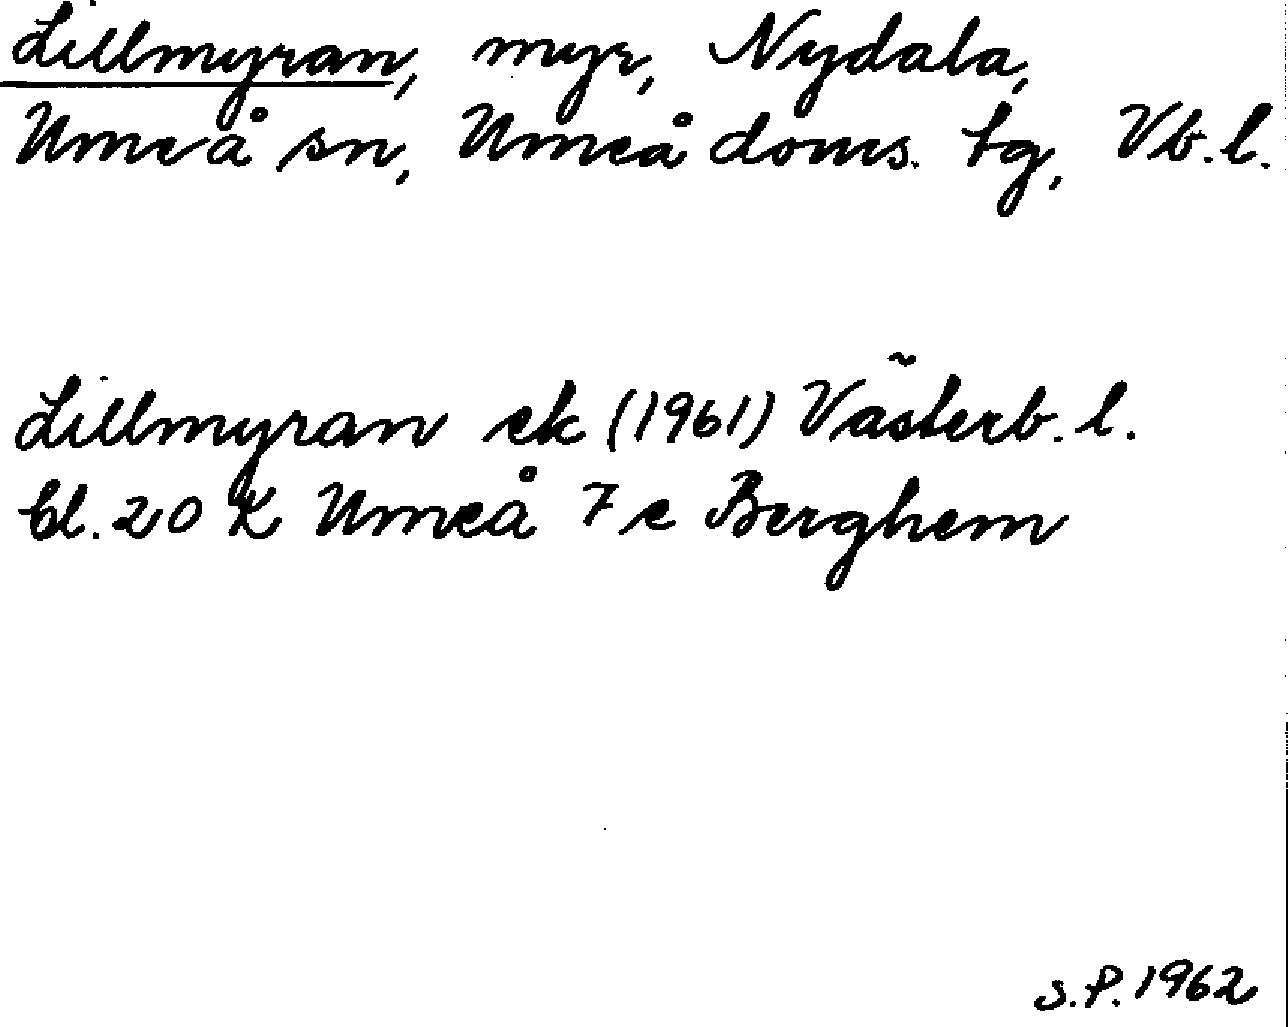 Lillmyran, myr, Nydala,
Umeå sn, Umeå doms. tg, Vb.l.
Lillmyran ek (1961) Västerb.l.
bl. 20 K Umeå 7 e Berghem
S.P. 1962